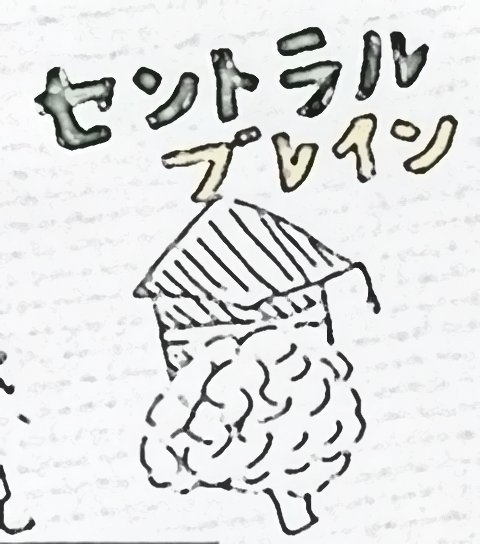 セントラル
ブレイン